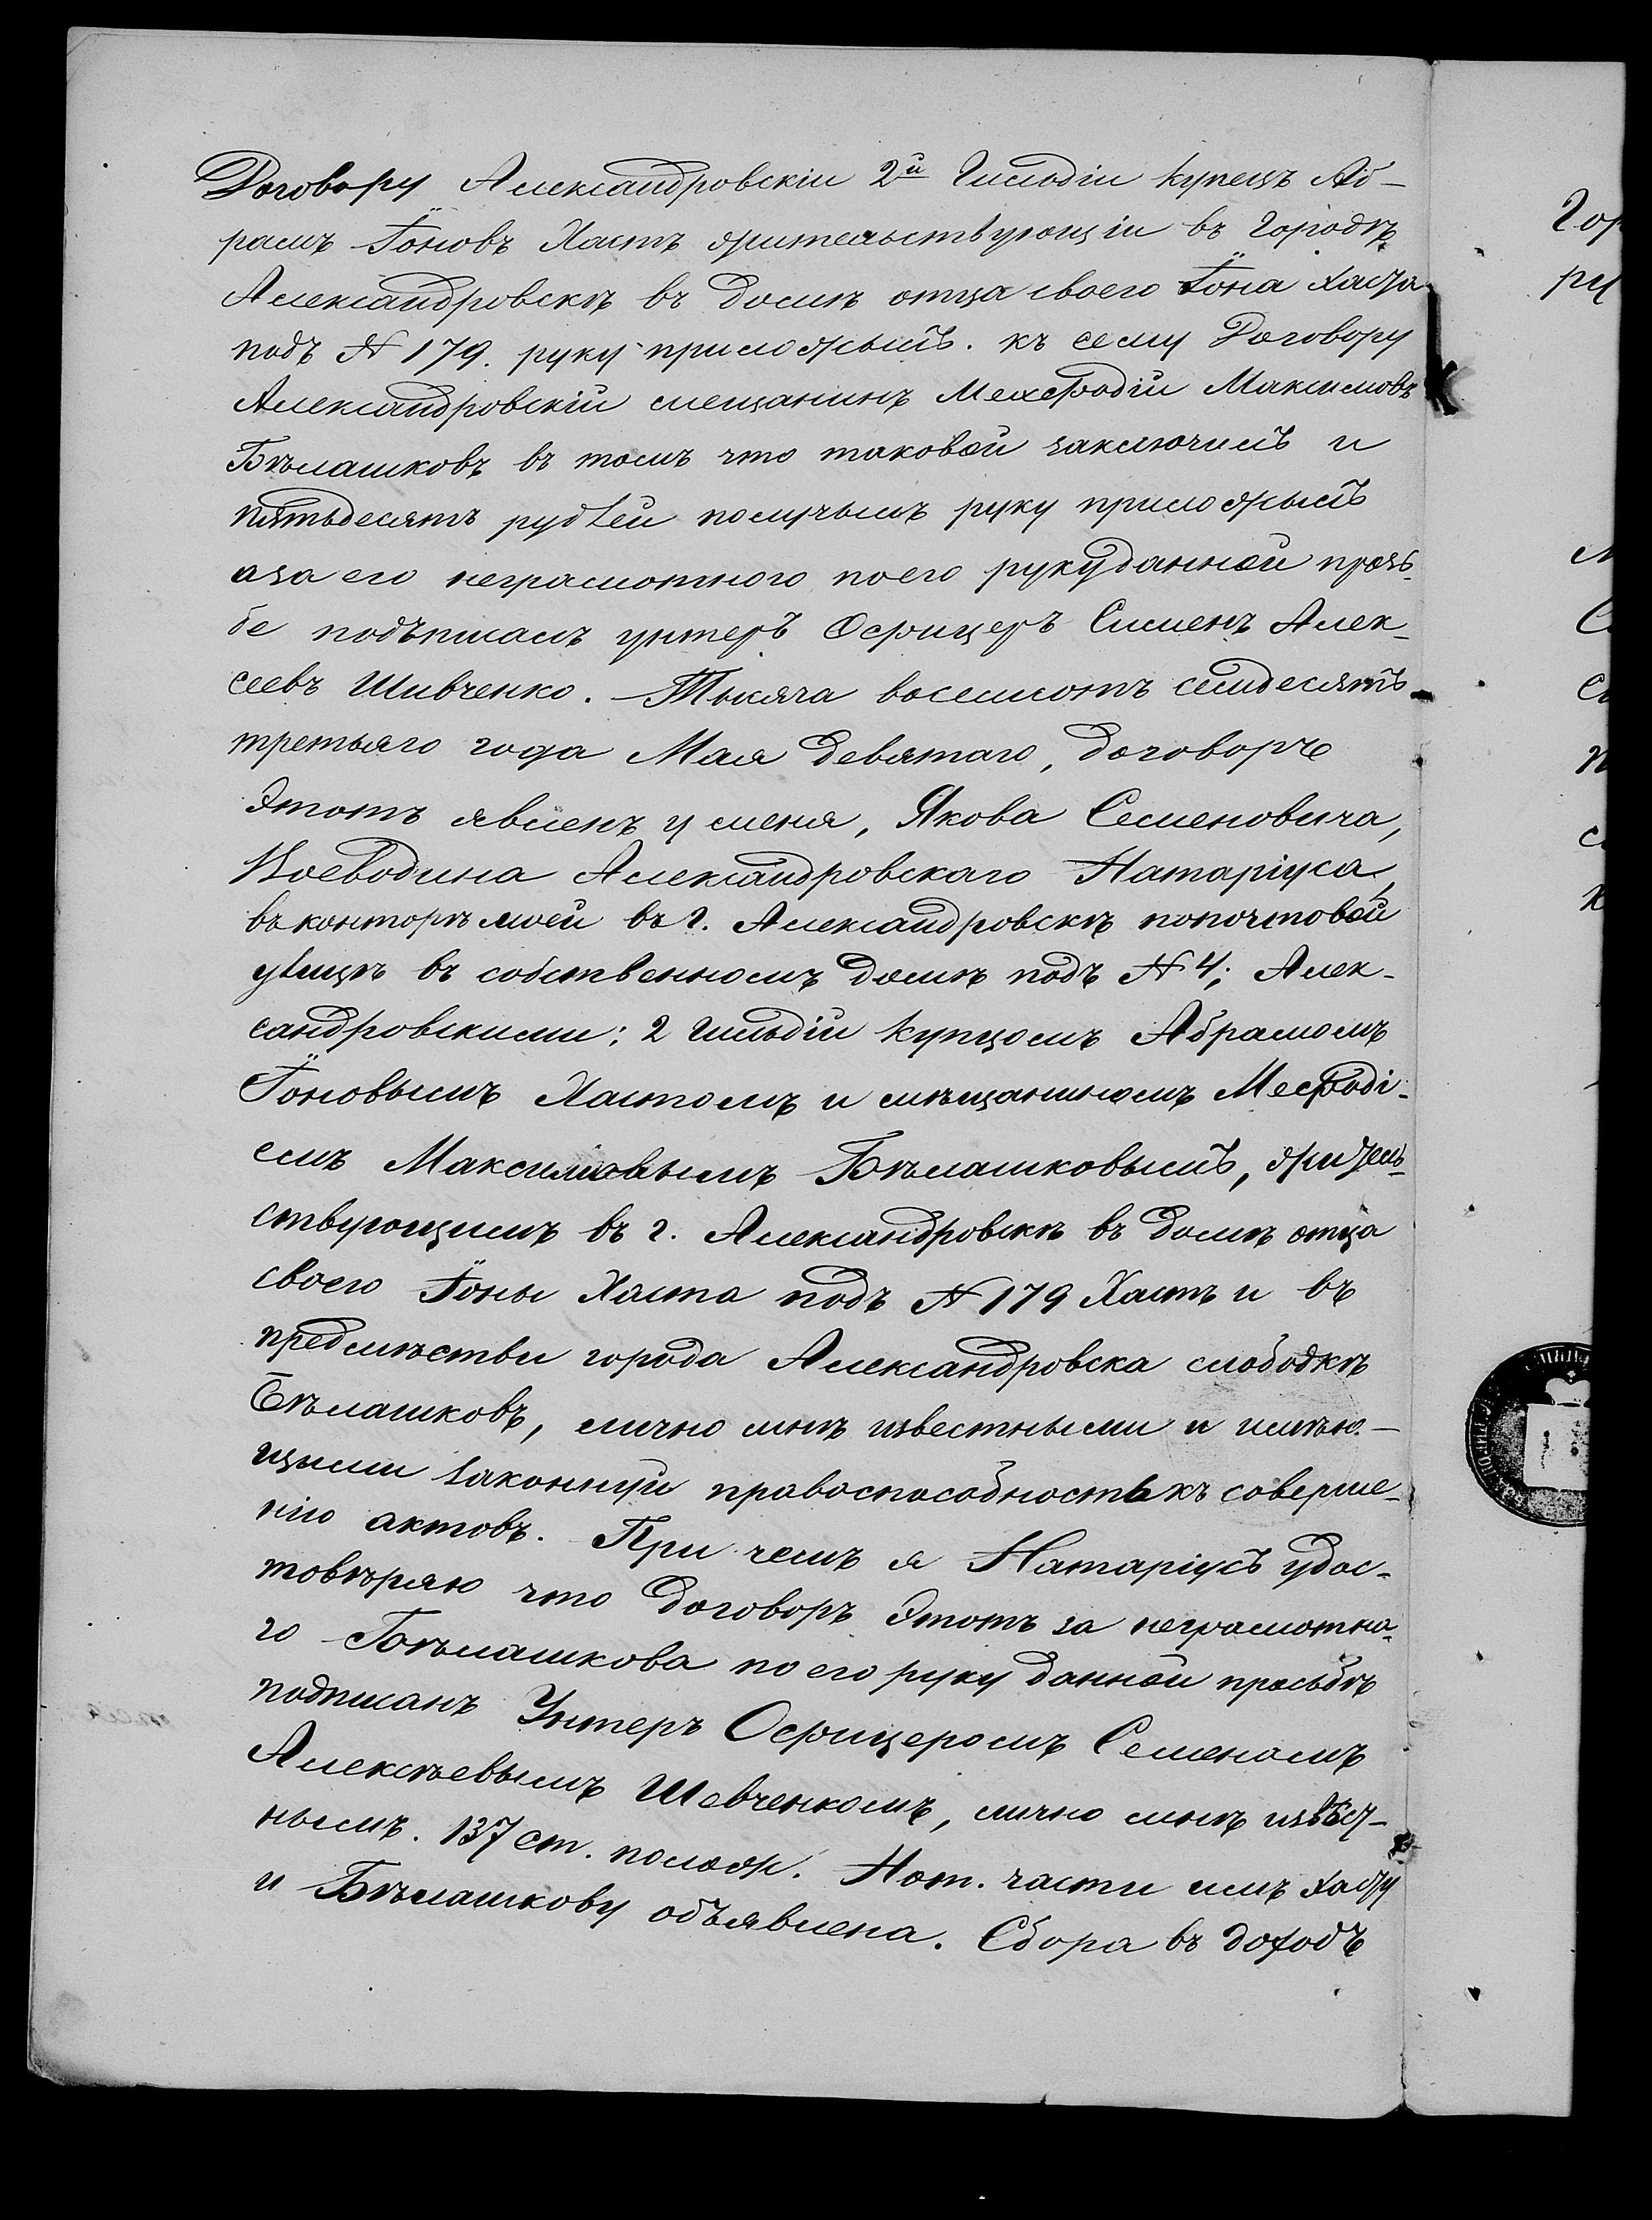 Договору Александровскій 2й Гильдіи купецъ Аб-
рамъ Іоновъ Хастъ жительствующій въ Городѣ
Александровскѣ въ домѣ отца своего Іона Хаста
подъ № 179. руку приложылъ. къ сему Договору
Александровскій мещанинъ Мехфодій Максимовъ
Бѣлашковъ въ томъ что таковой заключилъ и
пятьдесятъ рублей получылъ руку приложылъ
аза его неграмотного поего рукуданной прозь-
бе подъписалъ унтеръ Офицеръ Сименъ Алек-
сеевъ Шивченко. Тысяча восемсотъ семдесятъ
третьяго года Мая девятаго, договоръ
этотъ явленъ у меня, Якова Семеновича,
Воеводина Александровскаго Натаріуса,
въ конторѣ моей въ г. Александровскѣ попочтовой
улицѣ въ собственномъ домѣ подъ № 4; Алек-
сандровскими: 2 гильдіи купцомъ Абрамомъ
Іоновымъ Хастомъ и мѣщаниномъ Мефоді-
емъ Максимовымъ Бѣлашковымъ, житель-
ствующимъ въ г. Александровскѣ въ домѣ отца
своего Іоны Хаста подъ № 179 Хастъ и въ
предмѣстьи города Александровска слободкѣ
Бѣлашковъ, лично мнѣ известными и имѣю-
щыми законную правоспособность къ соверше-
нію актовъ. При чемъ я Натаріусъ удос-
товѣряю что договоръ этотъ за неграмотна-
го Бѣлашкова по его руку данной просьбѣ
подписанъ Унтеръ Офицеромъ Семеномъ
Алексѣевымъ Шевченкомъ, лично мнѣ извѣст-
нымъ. 137 ст. полож. Нот. части имъ Хасту
и Бѣлашкову объявлена. Сбора въ доходъ